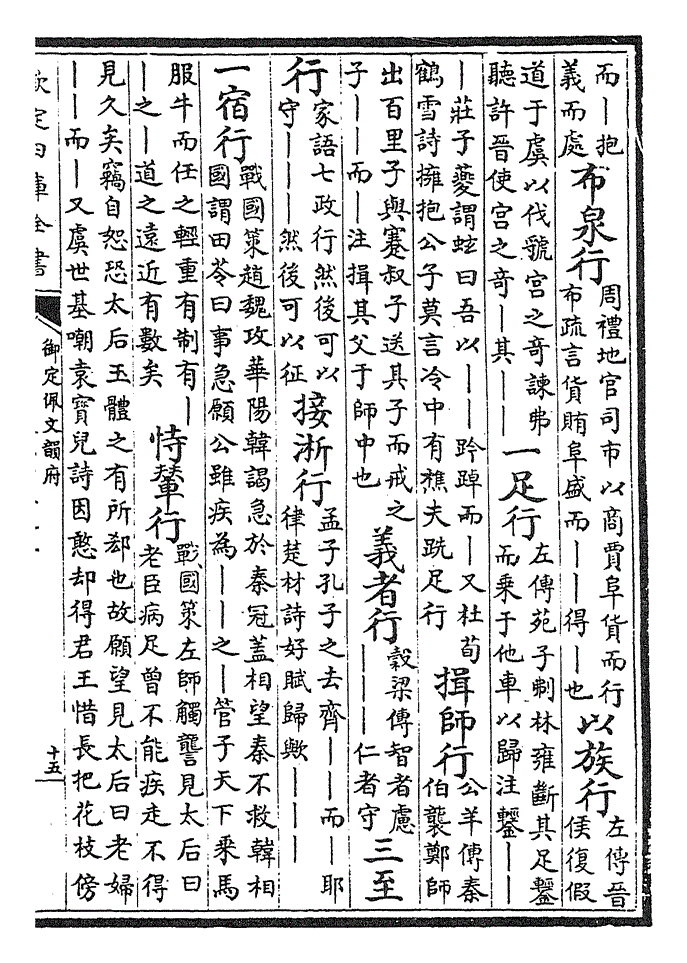 而｜抱義而處 布泉行 周禮地官司市以商賈阜貨而行布疏言貨賄阜盛而｜｜得｜也 以族行 左傳晉侯復假
道于虞以伐虢宮之奇諫弗聽許晉使宮之奇｜其｜｜ 一足行 左傳苑子刜林雍斷其足鑋而乘于他車以歸注鑋｜｜
｜莊子夔謂蚿曰吾以｜｜趻踔而｜又杜荀鶴雪詩擁抱公子莫言冷中有樵夫跣足行 揖師行 公羊傳秦伯襲鄭師
出百里子與蹇叔子送其子而戒之子｜｜而｜注揖其父于師中也 義者行 穀梁傳智者慮｜｜｜仁者守 三至
行 家語七政行然後可以守｜｜｜然後可以征 接淅行 孟子孔子之去齊｜｜而｜耶律楚材詩好賦歸歟｜｜｜
一宿行 戰國策趙魏攻華陽韓謁急於秦冠蓋相望秦不救韓相國謂田苓曰事急願公雖疾為｜｜之｜管子天下乘馬
服牛而任之輕重有制有｜｜之｜道之遠近有數矣 恃輦行 戰國策左師觸讋見太后曰老臣病足曾不能疾走不得
見久矣竊自恕恐太后玉體之有所郄也故願望見太后曰老婦｜｜而｜又虞世基嘲袁寶兒詩因憨却得君王惜長把花枝傍
欽定四庫全書
御定佩文韻府
十五